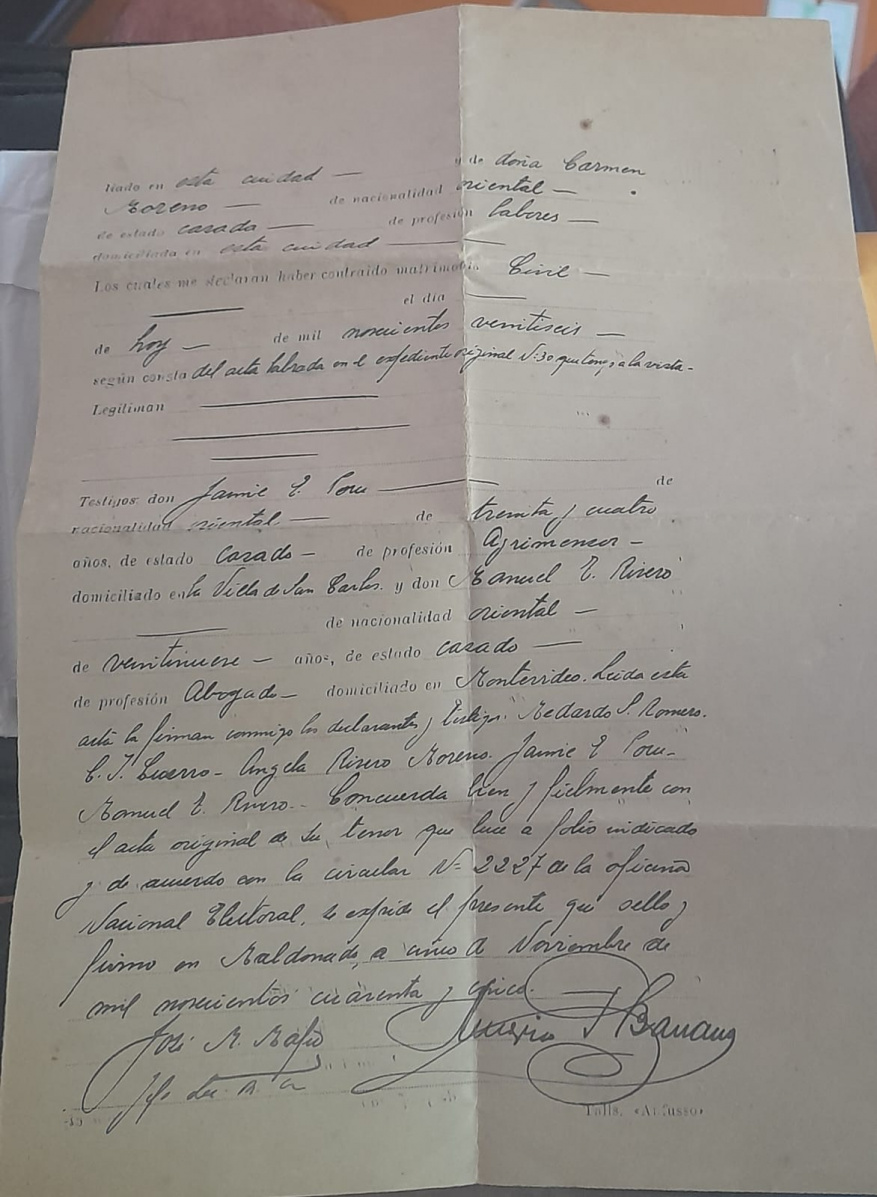 liado en esta ciudad — y de doña Carmen
Moreno — de nacionalidad oriental —
de estado casada — de profesión labores —
domiciliada en esta ciudad —
Los cuales me declaran haber contraido matrimonio Civil —
el día
de hoy — de mil novecientos ventiseis —
según consta del acta labrada en el expediente original N:30 que tengo a la vista -
Legitiman
Testigos don Jaime E. — de
nacionalidad oriental — de treinta y cuatro
años, de estado Casado — de profesión Agrimensor —
domiciliado en la Villa de San Carlos. y don Manuel E. Rivero
de nacionalidad oriental —
de ventinueve — años, de estado casado —
de profesión Abogado — domiciliado en Montevideo. Leida esta
acta la firman conmigo los declarantes y testigos. Medardo S. Romero.
Angela Rivero Moreno. Jaime E.
Manuel E. Rivero. - Concuerda bien y fielmente con
el acta original de su tenor que luce a folio indicado
y de acuerdo con la circular Nº 2227 de la oficina
Nacional Electoral, se expide el presente que sello y
firmo en Maldonado, a cinco de Noviembre de
mil novecientos cuarenta y cinco.
José M.
Talls.